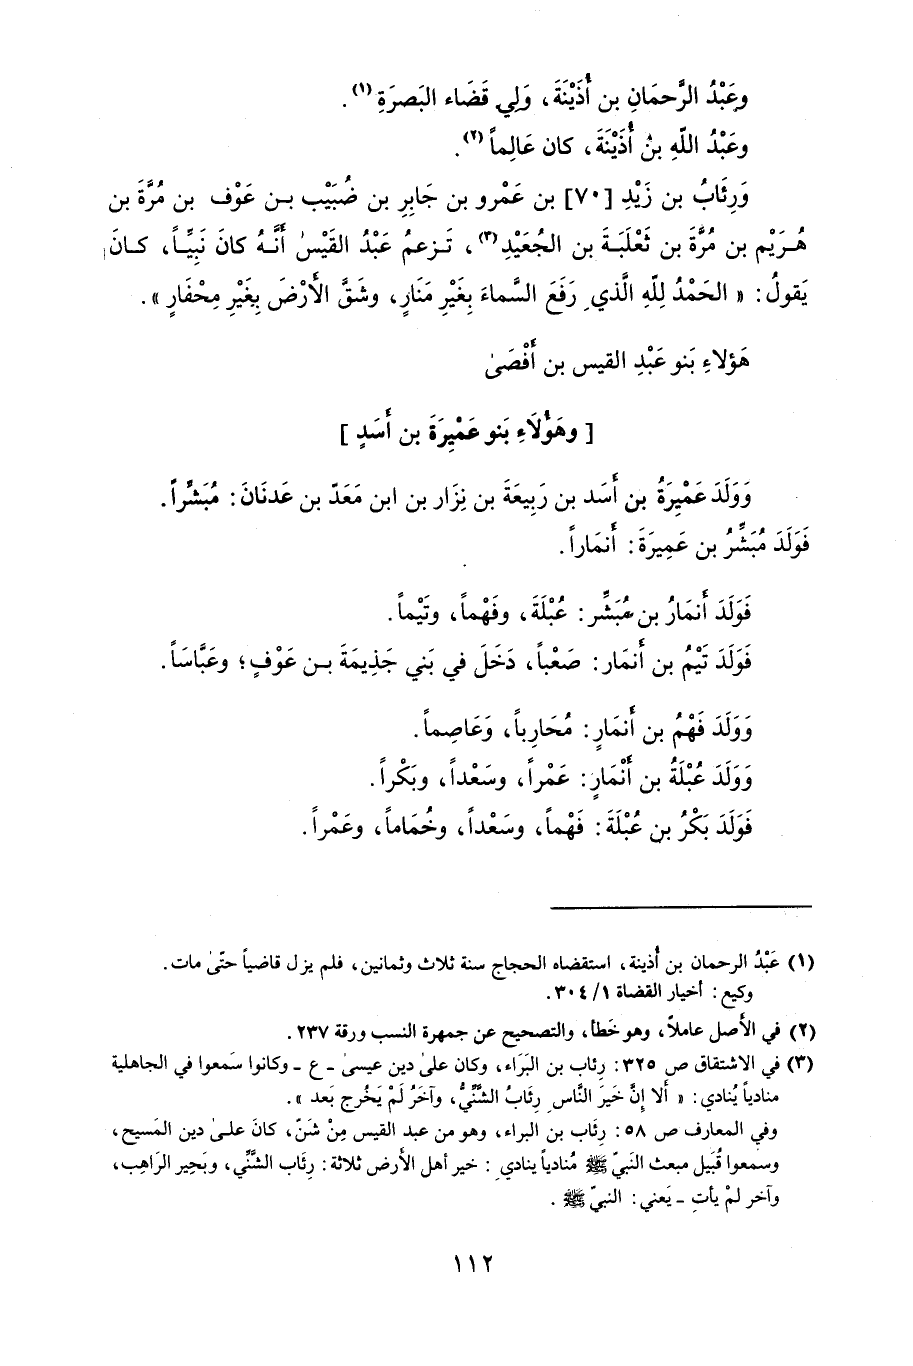 وعَبْدُ الرَّحمَانِ بن أُذَيْنَةَ، وَلِي قَضَاء البَصرَةِ (١).
وعَبْدُ اللّهِ بنُ أُذَيْنَةَ، كان عَالِماً (٢).
وَرِئَابُ بن زَيْدِ [٧٠] بن عَمْرو بن جَابِرِ بن ضُبَيْب بـن عَوْف بن مُرَّةَ بن
هُـرَيْم بن مُرَّةَ بن ثَعْلَبَـةَ بن الـجُعَيْدِ (٣)، تَـزعمُ عَبْدُ القَيْسُ أَنَّـهُ كانَ نَبِيّـاً، كـانَ
يَقولُ: « الحَمْدُ لِلّهِ الَّذي رَفَعَ السَّماءَ بِغَيْرِ مَنَارٍ، وشَقَّ الأَرْضَ بِغَيْرِ مِحْفَارٍ ».
هَؤلاءِ بَنو عَبْدِ القيس بن أَفْصَىٰ
[ وهَؤُلَاءِ بَنو عَمْيِرَةَ بن أَسَدٍ ]
وَوَلَدَ عَمْيِرَةُ بن أَسَد بن رَبِيعَةَ بن نِزَار بن ابن مَعَدّ بن عَدنَانَ: مُبَشِّراً.
فَوَلَدَ مُبَشِّرُ بن عَمِيرَةَ: أَنمَاراً.
فَوَلَدَ أَنمَارُ بن مُبَشِّر: عُبْلَةَ، وفَهْماً، وتَيْماً.
فَوَلَدَ تَيْمُ بن أَنمَار: صَعْباً، دَخَلَ في بَني جَذِيمَةَ بـن عَوْفٍ؛ وعَبَّاسَاً.
وَوَلَدَ فَهْمُ بن أَنمَارٍ: مُحَارِباً، وَعَاصِماً.
وَوَلَدَ عُبْلَةُ بن أَنْمَارٍ: عَمْراً، وسَعْداً، وبَكْراً.
فَوَلَدَ بَكْرُ بن عُبْلَةَ: فَهْماً، وسَعْداً، وخُمَاماً، وعَمْراً.
(١) عَبْدُ الرحمان بن أُذينة، استقضاه الحجاج سنة ثلاث وثمانين، فلم يزل قاضياً حتّىٰ مات.
وكيع: أخبار القضاة ١/ ٣٠٤.
(٢) في الأَصل عاملاً، وهو خَطأ، والتصحيح عن جمهرة النسب ورقة ٢٣٧.
(٣) في الاشتقاق ص ٣٢٥: رِئاب بن البَرَاء، وكان علىٰ دين عيسىٰ ـ ع ـ وكانوا سَمعوا في الجاهلية
منادياً يُنادي: « أَلا إِنَّ خَيرَ النَّاسِ رِئَابُ الشَّنِّيُّ، وآخَرُ لَمْ يَخُرج بَعد ».
وفي المعارف ص ٥٨: رِئاب بن البراء، وهو من عبد القيس مِنْ شَنّ، كانَ علىٰ دين المَسيح،
وسمعوا قُبَيل مبعث النَبيّ ﷺ مُنادياً ينادي: خير أهل الأَرض ثلاثة: رِئَاب الشَّنِّي، وبَحير الرَاهِب،
وآخر لمْ يأتِ ـ يَعني: النبيّ ﷺ.
١١٢